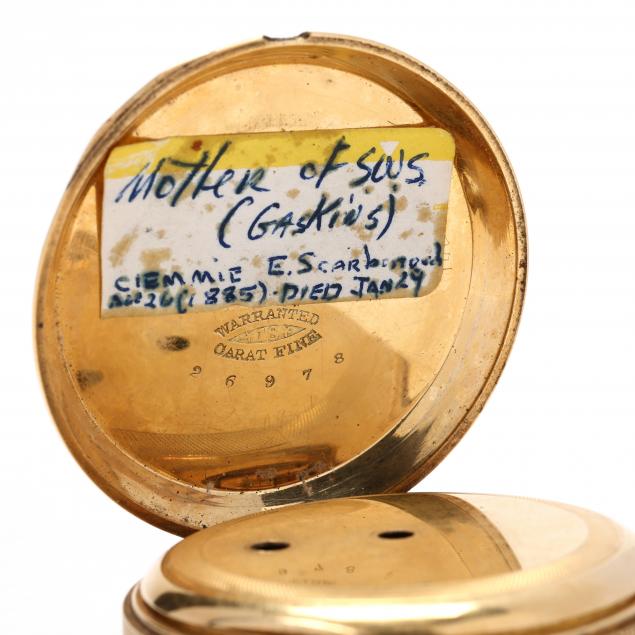 Mother of SWS
(Gaskins)
Clemmie E. Scarborough
26 (1885) - Died Jan 29
WARRANTED
CARAT FINE
26978